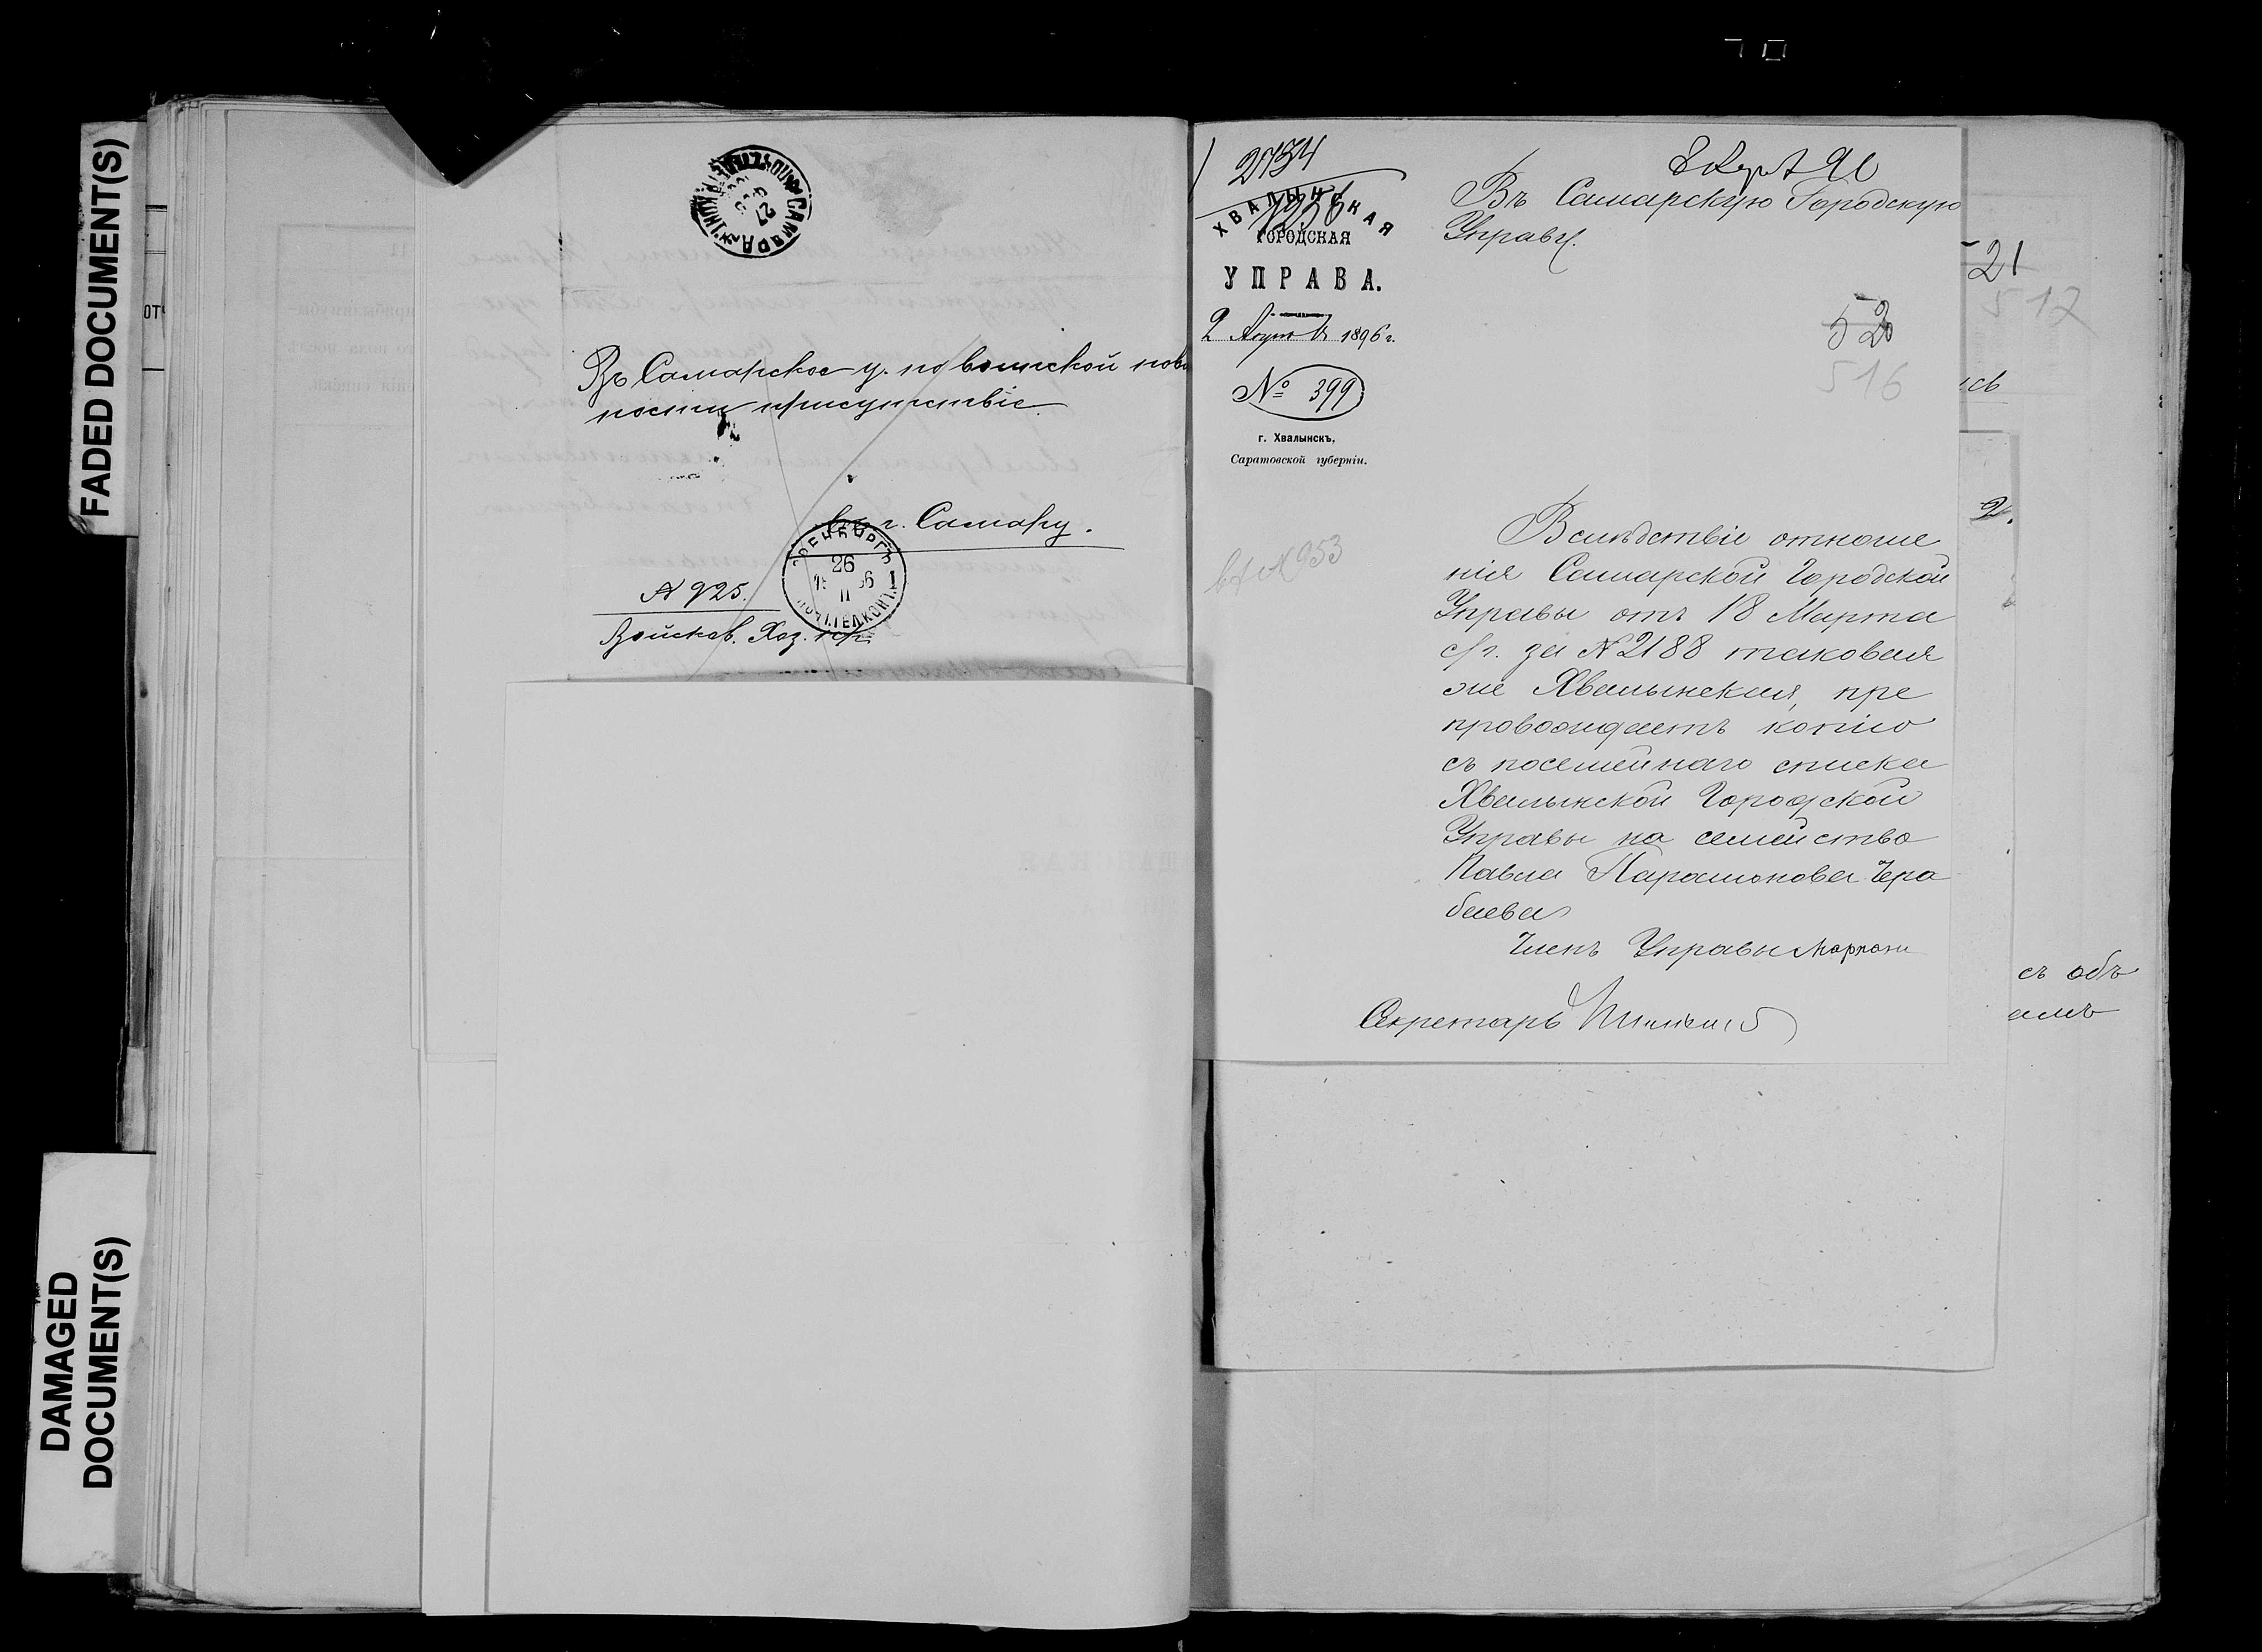 FADED DOCUMENT(S)
DAMAGED
DOCUMENT(S)
САМАРА
27
Въ Самарское у. по воинской пов
ности присутствіе.
въ г. Самару.
ОРЕНБУРГЪ
26
II
№ 925.
Войсков. Хоз. Пр.
2434
ХВАЛЫНСКАЯ
ГОРОДСКАЯ
УПРАВА.
2 Апрѣля 1896 г.
№ 399
г. Хвалынскъ,
Саратовской губерніи.
вх № 953
8 Апр 96
Въ Самарскую Городскую
Управу.
520
516
Вслѣдствіе отноше
нія Самарской Городской
Управы отъ 18 Марта
с/г. за № 2188 таковая
же Хвалынская, пре
провождаетъ копію
съ посемейнаго списка
Хвалынской Городской
Управы на семейство
Павла Парамонова Чера
баева
Членъ Управы
Секретарь
21
517
2.
съ объ
амъ